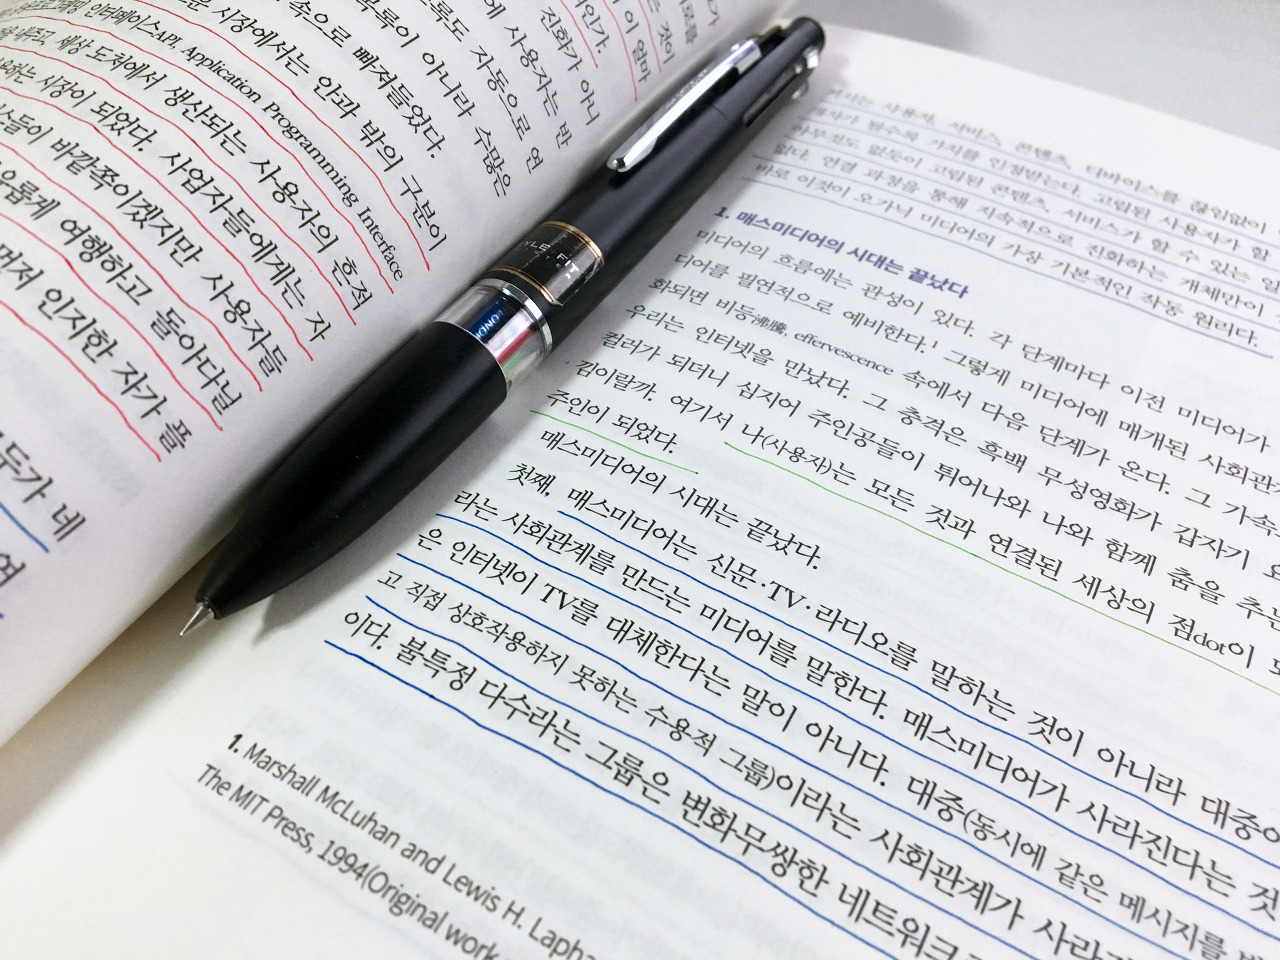 것이
이 얼마
진화가 아니
인가.
에 사용자는 반
로도 자동으로 연
목록이 아니라 수많은
속으로 빠져들었다.
시장에서는 안과 밖의 구분이
인터페이스API, Application Programming Interface
내주고, 세상 도처에서 생산되는 사용자의 흔적
하는 시장이 되었다. 사업자들에게는 자
들이 바깥쪽이겠지만 사용자들
롭게 여행하고 돌아다닐
먼저 인지한 자가 플
두가 네
연
STYLE FIT
사용자, 서비스, 콘텐츠, 디바이스를 끊임없이
가 될수록 가치를 인정받는다. 고립된 사용자가 할
아무것도 없듯이 고립된 콘텐츠, 서비스가 할 수 있는 일
없다. 연결 과정을 통해 지속적으로 진화하는 개체만이
바로 이것이 오가닉 미디어의 가장 기본적인 작동 원리다.
1. 매스미디어의 시대는 끝났다
미디어의 흐름에는 관성이 있다. 각 단계마다 이전 미디어가
디어를 필연적으로 예비한다.1 그렇게 미디어에 매개된 사회관
화되면 비등沸騰, effervescence 속에서 다음 단계가 온다. 그 가속
우리는 인터넷을 만났다. 그 충격은 흑백 무성영화가 갑자기
컬러가 되더니 심지어 주인공들이 튀어나와 나와 함께 춤을 추는
김이랄까. 여기서 나(사용자)는 모든 것과 연결된 세상의 점dot이
주인이 되었다.
매스미디어의 시대는 끝났다.
첫째, 매스미디어는 신문·TV·라디오를 말하는 것이 아니라 대중이
라는 사회관계를 만드는 미디어를 말한다. 매스미디어가 사라진다는 것
은 인터넷이 TV를 대체한다는 말이 아니다. 대중(동시에 같은 메시지를
고 직접 상호작용하지 못하는 수용적 그룹)이라는 사회관계가
이다. 불특정 다수라는 그룹은 변화무쌍한 네트워크
1. Marshall McLuhan and Lewis H.
The MIT Press, 1994(Original work